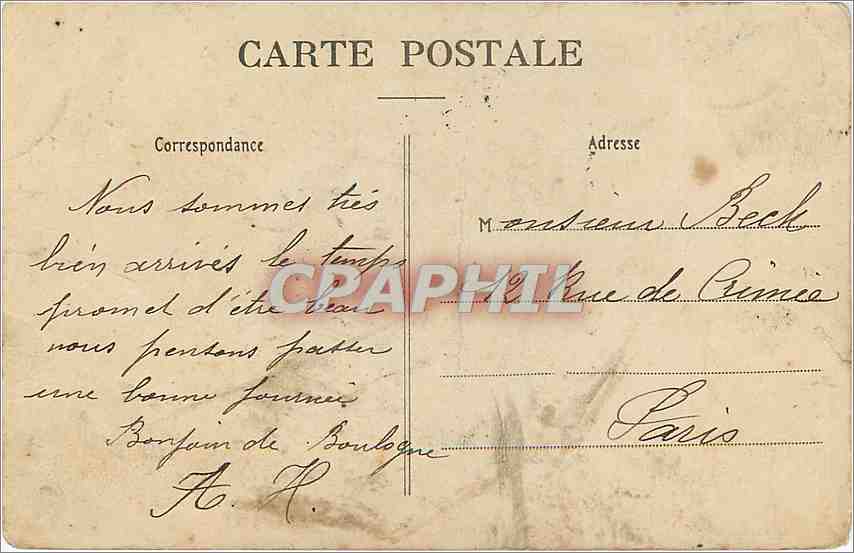 CARTE POSTALE
Correspondance
Nous sommes très
bien arrivés le temps
promet d'être beau
nous pensons passer
une bonne journée
Bonjour de Boulogne
A. H.
Adresse
Monsieur Beck
12 Rue de Crimée
Paris
CPAPHIL